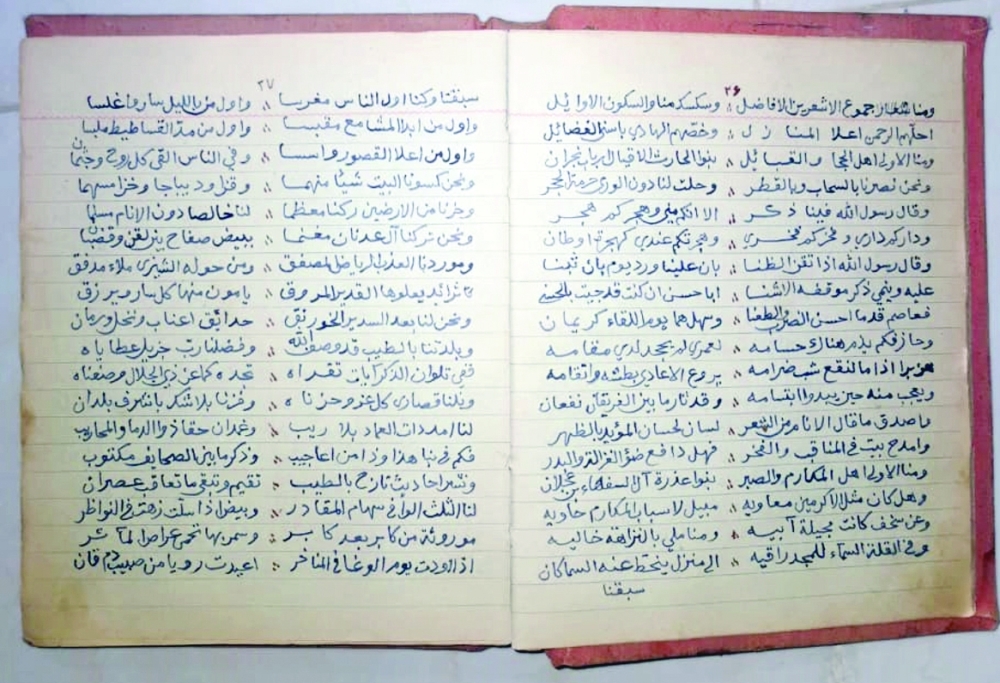 ٢٦
ومنا جموع الاشعرين الافاضل ؛؛ وسكسك منا والسكون الاوائل
احلهم الرحمن اعلا المنازل ؛؛ وخصهم الهادي باسنى الفضائل
ومنا الاولى اهل الحجا والقبائل ؛؛ بنوا الحارث الاقيال ارباب نجران
ونحن نصرنا بالسحاب وبالقطر ؛؛ وحلت لنا دون الورى حرمة الحجر
وقال رسول الله فينا ذكر ؛؛ الا انكم مني وهجركم هجر
وداركم داري وفخركم فخري ؛؛ وهجرتكم عندي كهجرة اوطان
وقال رسول الله اذا تقن الظنا ؛؛ بان علينا ورد يوم بان ثبنا
عليه وينمي ذكر موقفه الاسنا ؛؛ ابا حسن ان كنت قد جيت بالحسنى
فعاصم قدما احسن الضرب والطعنا ؛؛ وسهل هما يوم اللقاء كريمان
وحازفكم بدر هناك حسامه ؛؛ لعمري لم يجحد لدي مقامه
هزبرا اذا ما النقع شب ضرامه ؛؛ يروع الاعادي بطشه وانتقامه
ويعجب منه حين يبدوا ابتسامه ؛؛ وقد ثار ما بين الفريقان نقعان
واصدق ما قال الانام من الشعر ؛؛ لسان لحسان المؤيد بالظهر
وامدح بيت في المناقب والفخر ؛؛ فهل دافع ضؤ الغزالة والبدر
ومنا الاولى اهل المكارم والصبر ؛؛ بنوا عذرة آل السفهاء عجلان
وهل كان مثل الاكرمين معاويه ؛؛ مبيل لاسباب المكارم حاويه
وعن سخف كانت مجيلة آبيه ؛؛ ومنا ملي بالنزاهه خاليه
وفي القلة السماء للمجد راقيه ؛؛ الى منزل ينحط عنه السماكان
سبقنا
٢٧
سبقنا وكنا اول الناس مغرسا ؛؛ واول من بالليل سار واغلسا
واول من ابدا المشامع مقبسا ؛؛ واول من مد القساطيط ملبسا
واول من اعلا القصور واسسا ؛؛ وفي الناس القى كل روح وجثمان
ونحن كسونا البيت شيئا منهما ؛؛ وقزا وديباجا وخزا مسهما
وحزنا من الارضين ركنا معظما ؛؛ لنا خالصا دون الانام مسلما
ونحن تركنا آل عدنان مغنما ؛؛ ببيض صفاح يتركن وقضبان
وموردنا العذب الرياض لمصفق ؛؛ ومن حوله الشيزى ملاء مدفق
ثرائد يعلوها القدير المروق ؛؛ يامون منها كل سار ويرزق
ونحن لنا بعد السدير الخورنق ؛؛ حدائق اعناب ونخل ورمان
وبلدتنا بالطيب قد وصف الله ؛؛ وفضلنا رب جزيل عطاياه
ففي تلوات الذكر آيات تقراه ؛؛ تجده كما عن ذي الجلال وصفناه
ونلنا قصارى كل عز وحزناه ؛؛ وفزنا بلا شك باشرف بلدان
لنا امددات العماد بلا ريب ؛؛ وغمدان حقا ذو الدما والمحاريب
فكم في نبا هذا وذا من اعاجيب ؛؛ وذكر ما بين الصحايف مكتوب
ونشر احاديث تارخ بالطيب ؛؛ تقيم وتبقى ما تعاقب عصران
لنا الثلث الوافي سهام المقادر ؛؛ وبيض اذا سلت زهت في النواظر
موروثة من كابر بعد كابر ؛؛ وسمر بها تحمى عراص المآثر
اذا اوردت يوم الوغا في المناخر ؛؛ اعيدت رويا من صبيب دم قان